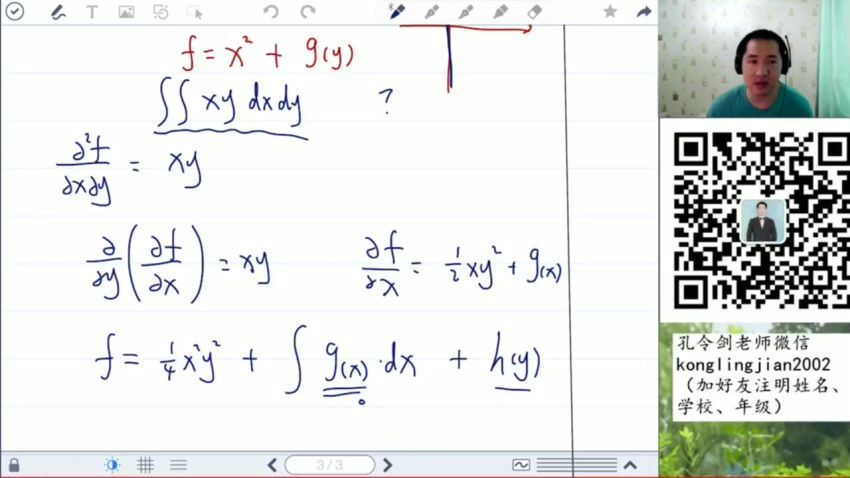 f = x² + g(y)
∫∫ xy dxdy ?
∂²f/∂x∂y = xy
∂/∂y (∂f/∂x) = xy ∂f/∂x = ½xy² + g(x)
f = ¼x²y² + ∫ g(x)·dx + h(y)
3/3
孔令剑老师微信
konglingjian2002
（加好友注明姓名、
学校、年级）